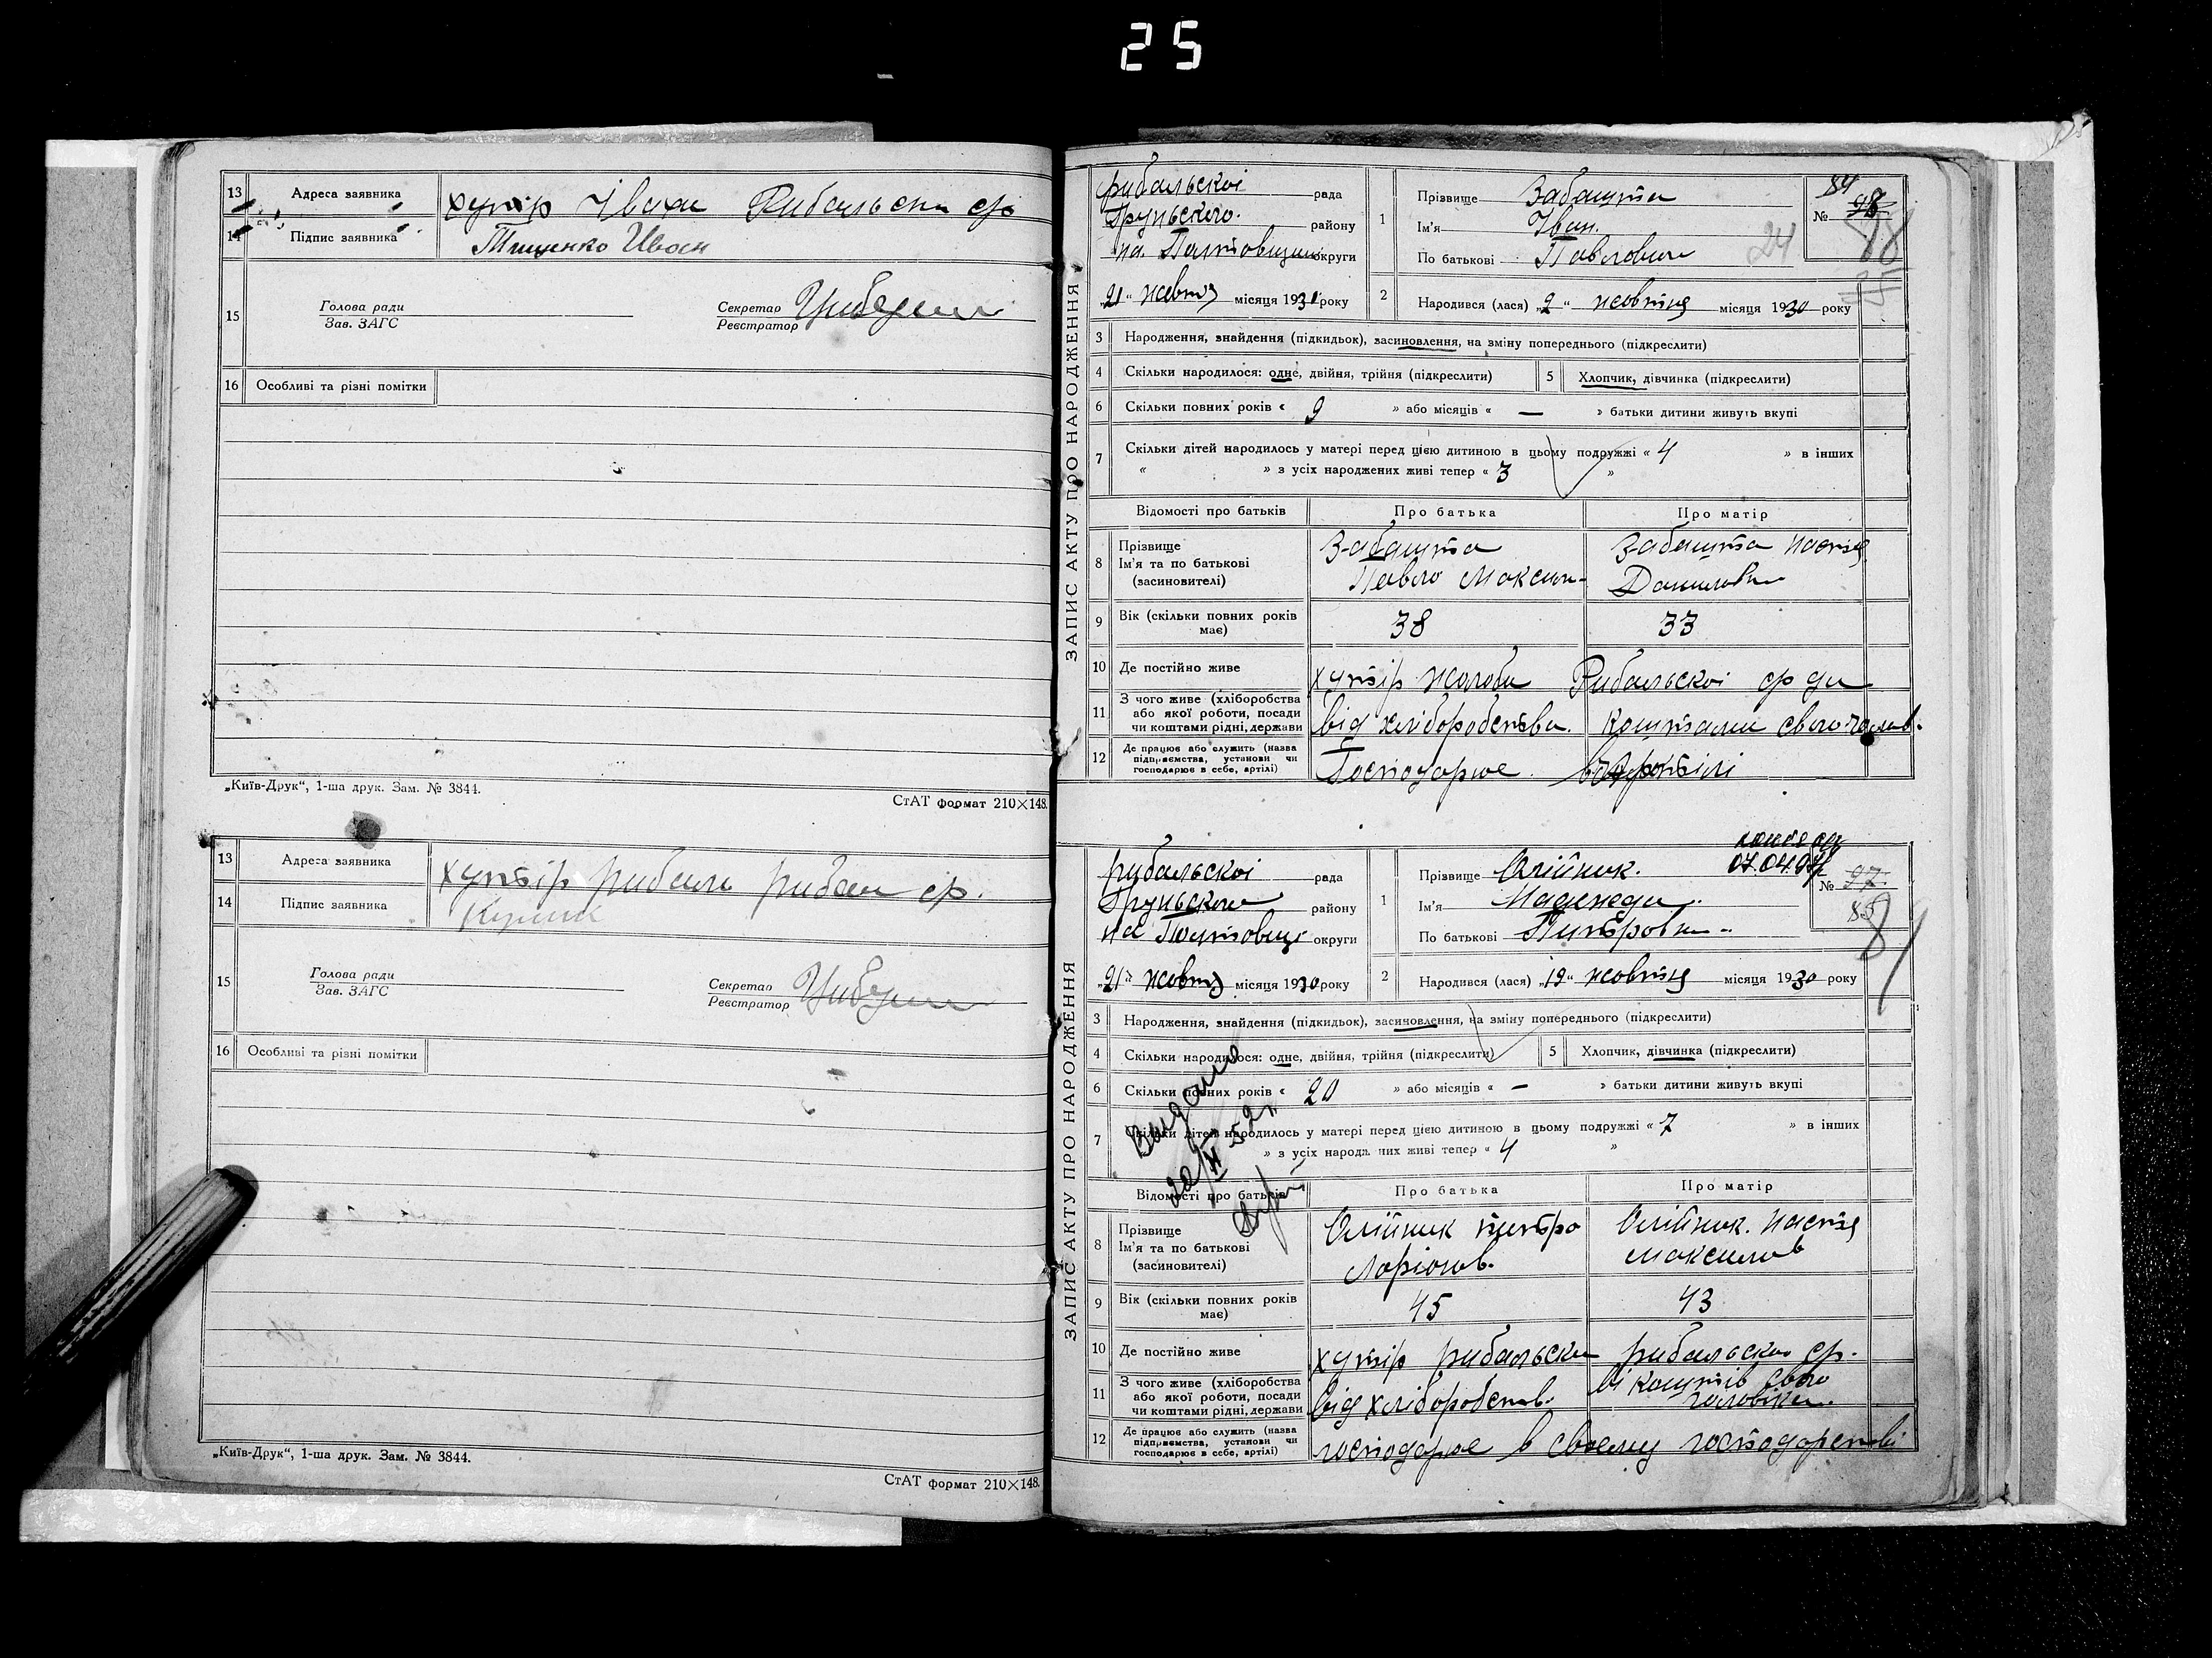 25
13 Адреса заявника хутір Івахи Рибальськи с/р
14 Підпис заявника Тищенко Иван
15 Голова ради
Зав. ЗАГС
Секретар
Реєстратор
16 Особливі та різні помітки
„Київ-Друк“, 1-ша друк. Зам. № 3844.
СтАТ формат 210×148.
13 Адреса заявника хутір
14 Підпис заявника
15 Голова ради
Зав. ЗАГС
Секретар
Реєстратор
16 Особливі та різні помітки
„Київ-Друк“, 1-ша друк. Зам. № 3844.
СтАТ формат 210×148.
ЗАПИС АКТУ ПРО НАРОДЖЕННЯ
рибальскоі рада
Груньского району
на Полтовщини округи
„21“ жовтня місяця 1930 року
1 Прізвище Забашта
Ім'я Іван.
По батькові Павлович
84
№ 98
24
2 Народився (лася) „2“ жовтня місяця 1930 року
3 Народження, знайдення (підкидьок), засиновлення, на зміну попереднього (підкреслити)
4 Скільки народилося: одне, двійня, трійня (підкреслити)
5 Хлопчик, дівчинка (підкреслити)
6 Скільки повних років « 9 » або місяців « — » батьки дитини живуть вкупі
7 Скільки дітей народилось у матері перед цією дитиною в цьому подружжі « 4 » в інших
« » з усіх народжених живі тепер « 3 »
Відомості про батьків Про батька Про матір
8 Прізвище
Ім'я та по батькові
(засиновителі)
Забашта
Павло Максим-
Забашта Настя
Даниловн
9 Вік (скільки повних років має) 38 33
10 Де постійно живе хутір Жолоби Рибальскоі с/ради
11 З чого живе (хліборобства або якої роботи, посади чи коштами рідні, держави від хліборобства. Коштами свого чолов.
12 Де працює або служить (назва підприємства, установи чи господарює в себе, артілі) Господарює. в артілі
ЗАПИС АКТУ ПРО НАРОДЖЕННЯ
рибальскоі рада
Груньского району
на Полтовщі округи
„21“ жовтня місяця 1930 року
1 Прізвище Олійник.
Ім'я Надежда.
По батькові Питровна.
07.04.97
№ 97
85
2 Народився (лася) „19“ жовтня місяця 1930 року
3 Народження, знайдення (підкидьок), засиновлення, на зміну попереднього (підкреслити)
4 Скільки народилося: одне, двійня, трійня (підкреслити)
5 Хлопчик, дівчинка (підкреслити)
6 Скільки повних років « 20 » або місяців « — » батьки дитини живуть вкупі
7 Скільки дітей народилось у матері перед цією дитиною в цьому подружжі « 7 » в інших
» з усіх народжених живі тепер « 4 »
Відомості про батьків Про батька Про матір
8 Прізвище
Ім'я та по батькові
(засиновителі)
Олійник питро
Ларіонов.
Олійник. Настя
Максимов
9 Вік (скільки повних років має) 45 43
10 Де постійно живе хутір рибальски рибальско с/р.
11 З чого живе (хліборобства або якої роботи, посади чи коштами рідні, держави від хліборобств. ві коштів свого
чоловіка.
12 Де працює або служить (назва підприємства, установи чи господарює в себе, артілі) господарює в своему господарстві